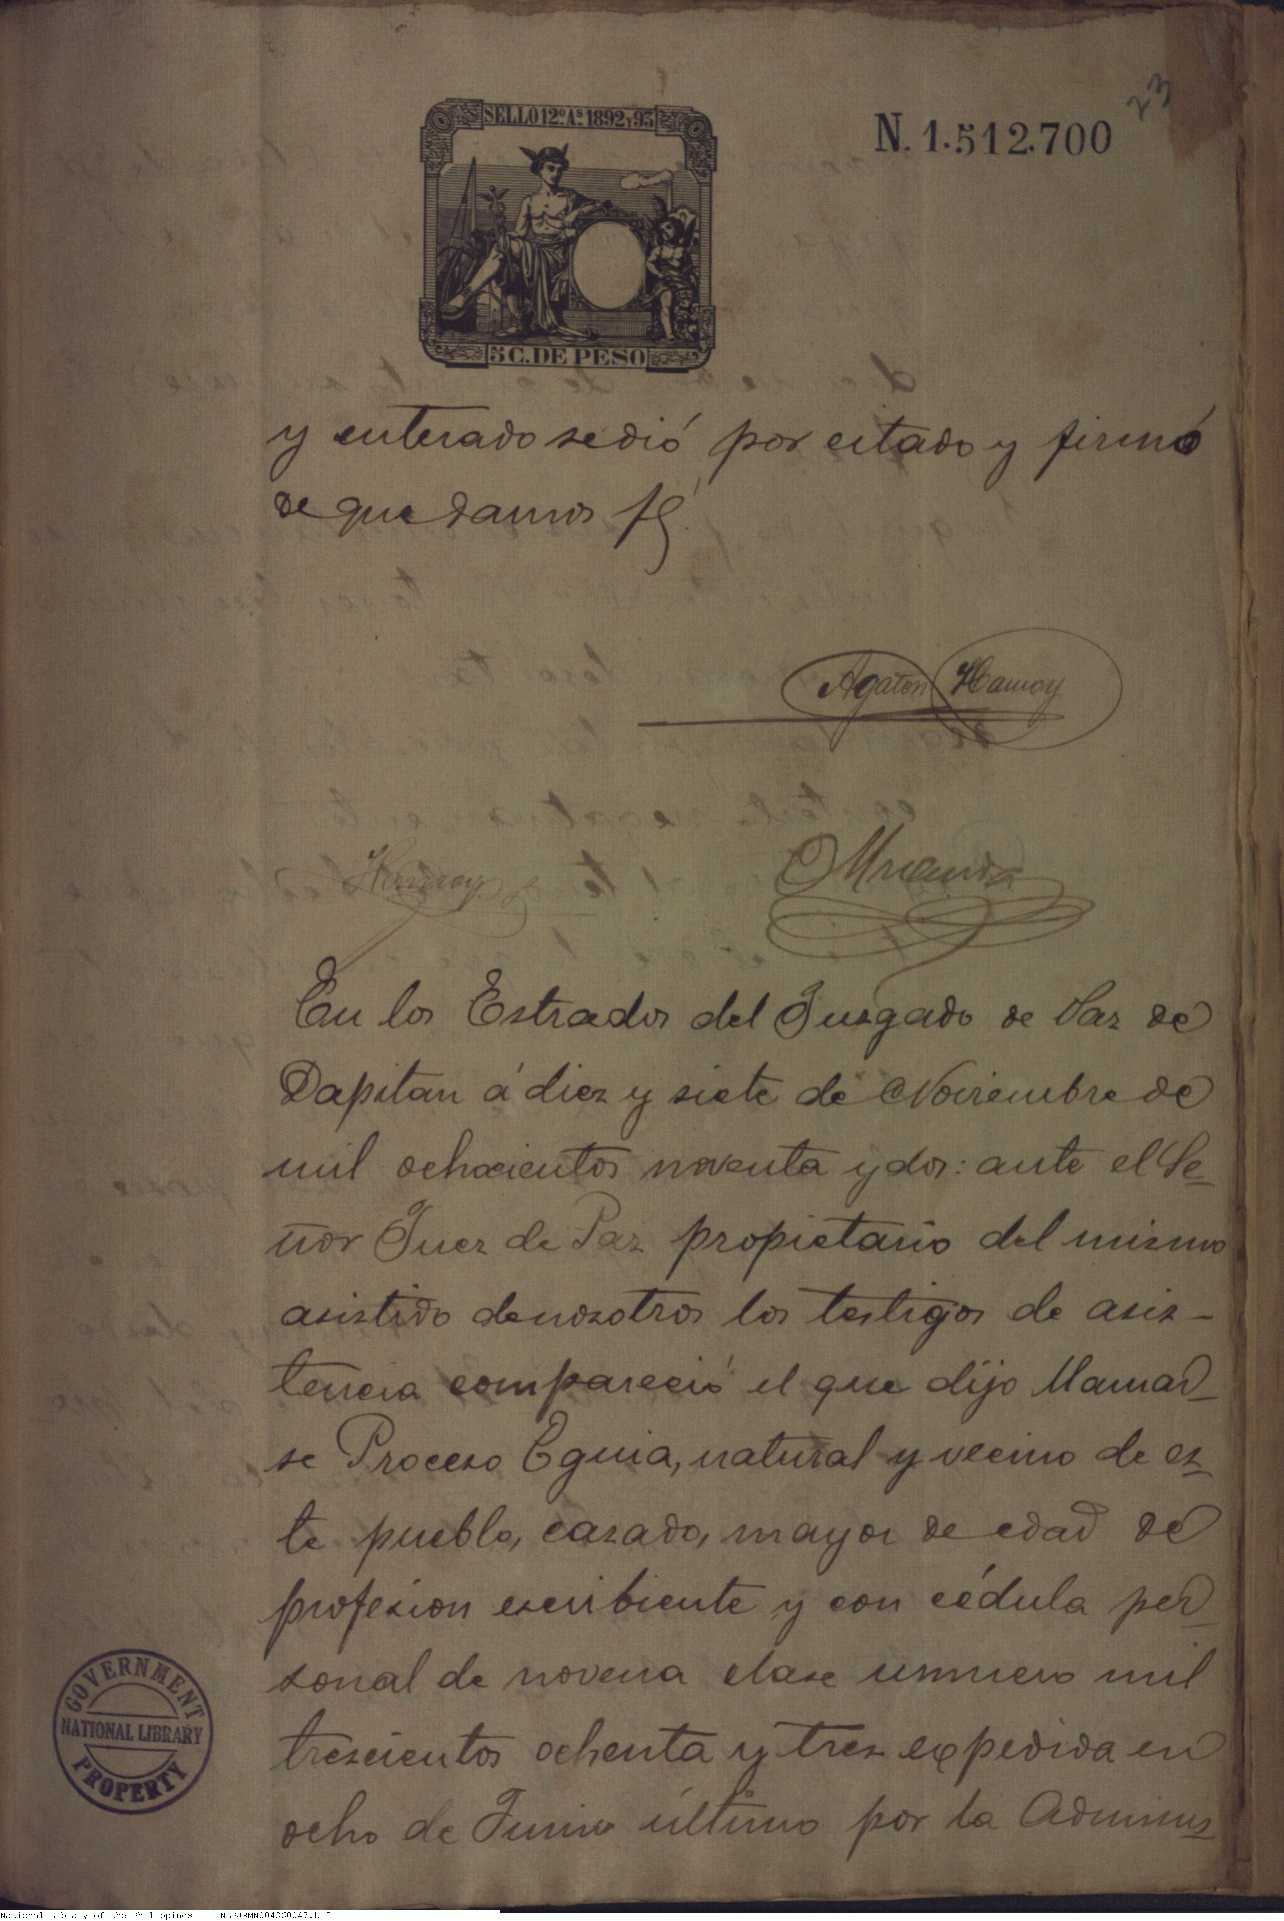 23
SELLO 12º As. 1892 y 93
N. 1.512.700
5 C. DE PESO
y enterado se dió por citado y firmó
de que damos fé.
Agaton Hamoy
Hamoy
Miranda
En los Estrados del Juzgado de Paz de
Dapitan á diez y siete de Noviembre de
mil ochocientos noventa y dos: ante el Se-
ñor Juez de Paz propietario del mismo
asistido de nosotros los testigos de asis-
tencia compareció el que dijo llamar-
se Proceso Eguia, natural y vecino de es-
te pueblo, casado, mayor de edad de
profesion escribiente y con cédula per-
sonal de novena clase número mil
trescientos ochenta y tres expedida en
ocho de Junio último por la Adminis-
GOVERNMENT
NATIONAL LIBRARY
PROPERTY
National Library of the Philippines